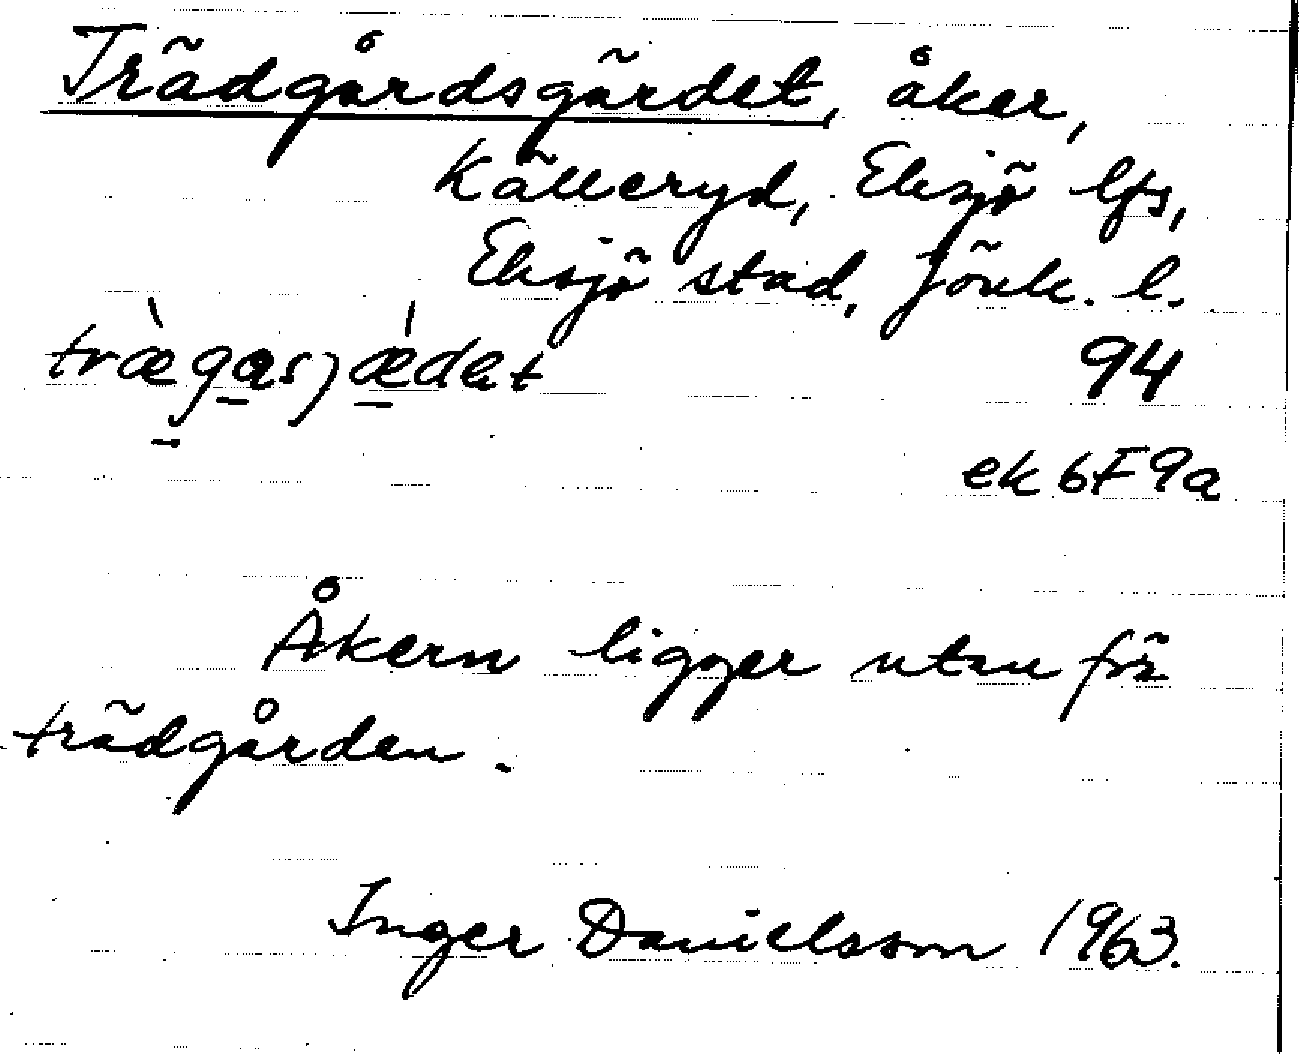 Trädgårdsgärdet, åker,
Källeryd, Eksjö lfs,
Eksjö stad, Jönk. l.
94
ek 6F9a
Åkern ligger utanför
trädgården.
Inger Danielsson 1963.